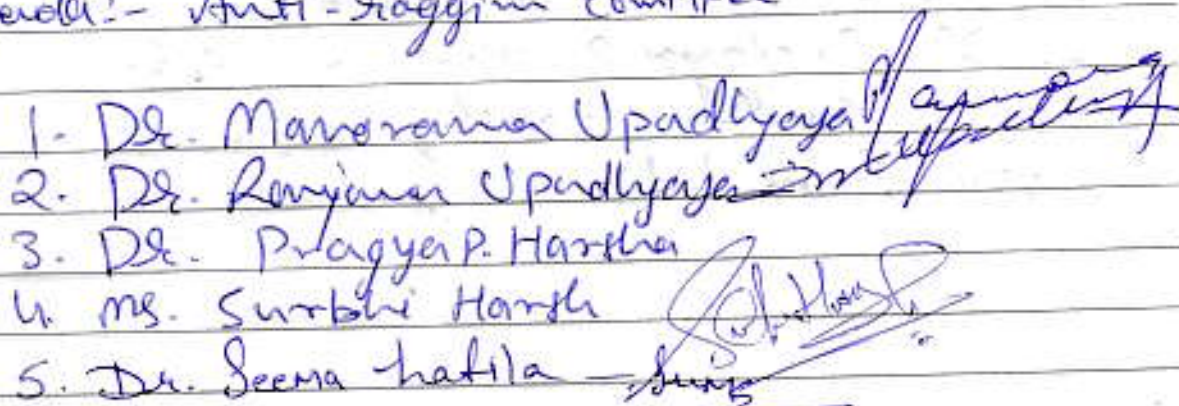 :- Anti-Raggini Committee
1. Dr. Manorama Upadhyaya
2. Dr. Ranjana Upadhyaya
3. Dr. Pragya P. Harsha
4. Ms. Surbhi Harsh
5. Dr. Seema